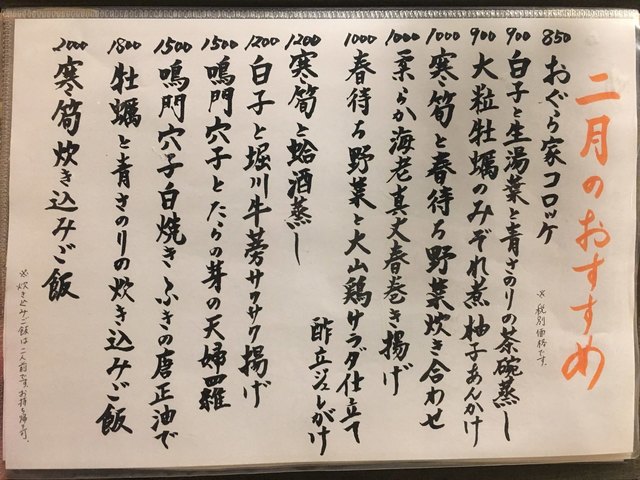 二月のおすすめ
※税別価格です。
850 おぐら家コロッケ
900 白子と生湯葉と青さのりの茶碗蒸し
900 大粒牡蠣のみぞれ煮 柚子あんかけ
1000 寒筍と春待ち野菜炊き合わせ
1000 柔らか海老真丈春巻き揚げ
1000 春待ち野菜と大山鶏サラダ仕立て
酢立ジュレがけ
1200 寒筍と蛤酒蒸し
1200 白子と堀川牛蒡サクサク揚げ
1500 鳴門穴子とたらの芽の天婦羅
1500 鳴門穴子白焼き ふきの唐正油で
1800 牡蠣と青さのりの炊き込みご飯
2000 寒筍炊き込みご飯
※炊き込みご飯は二人前です。お持ち帰り可。